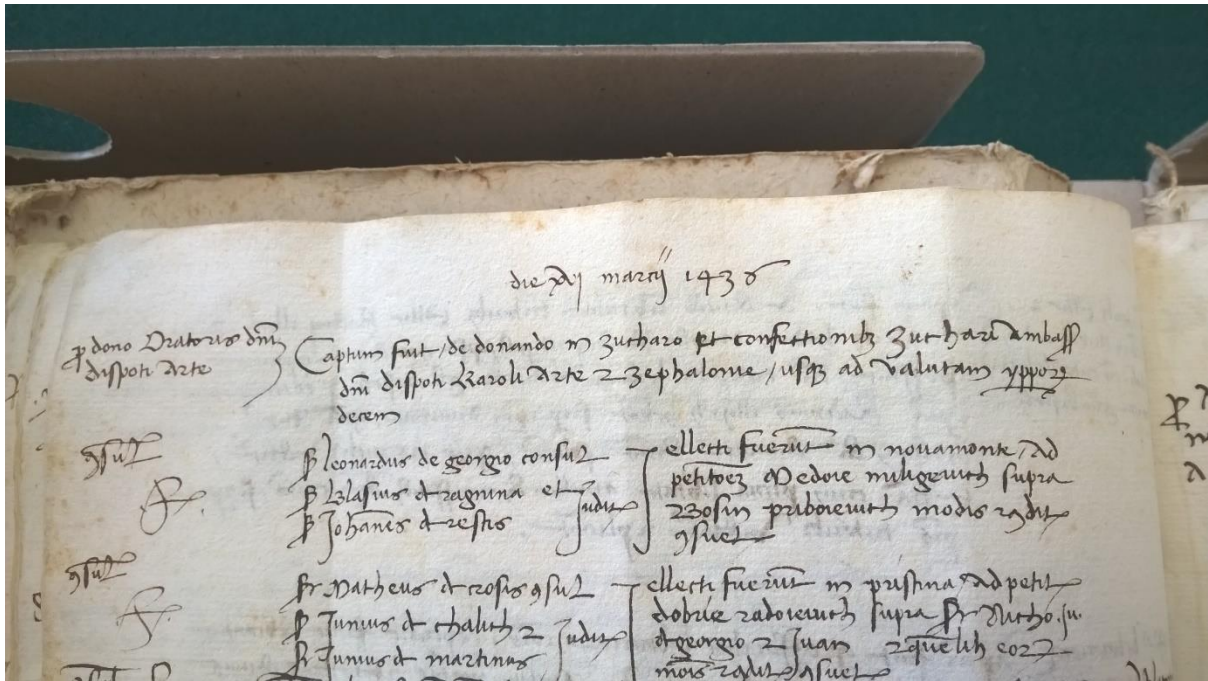 die xxvi marcij 1436
pro dono Oratoris dnī
dispoti Arte
Captum fuit / de donando in zucharo et confectionibȝ zuchari ambass
dnī dispoti Karoli Arte ⁊ zephalonie / usqȝ ad valutam yppor
decem
ꝯsul
Sr leonardus de georgio consul
Sr Blasius de ragnina et
Sr Johanēs de restis
Judic
ellecti fuerūt in novamonte / ad
petitoēȝ Medoie miligevich supra
Bosin priboievich modis ꝯdit
ꝯsuet
ꝯsul
Sr Matheus de crosis ꝯsul
Sr Junius de chalich ⁊
Sr Junius de martinus
Judic
ellecti fuerūt in pristina ad petit
dobrie radoievich supra Sr Nicho . Ju .
de georgio ⁊ Juan ⁊ quēlib eorȝ
mōis ꝯdit ꝯsuet